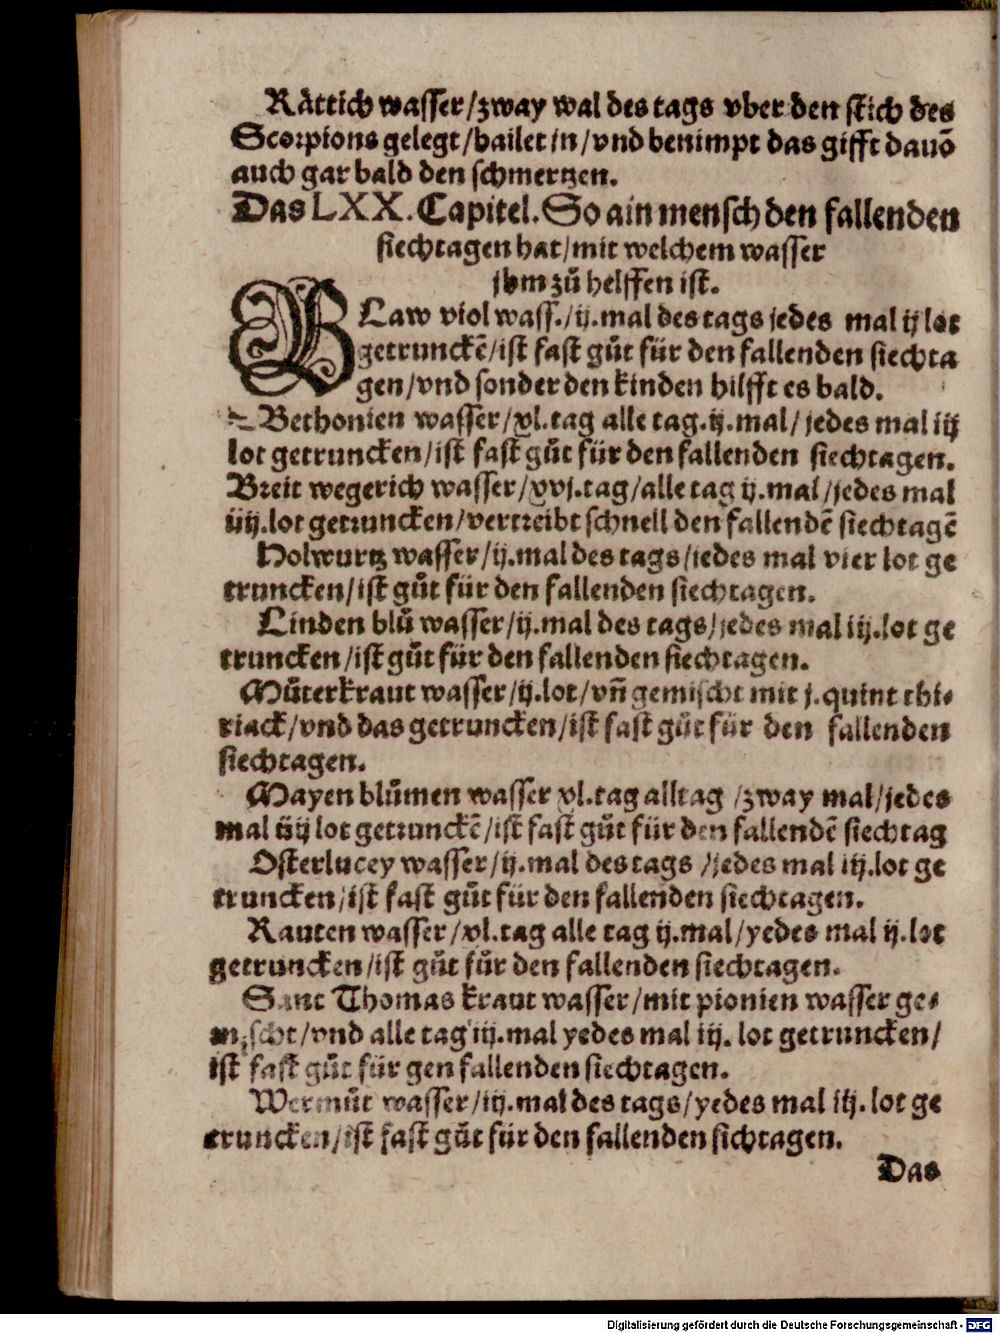 Rättich wasser/zway wal des tags vber den stich des
Scorpions gelegt/hailet in/vnd benimpt das gifft dauō
auch gar bald den schmertzen.
Das LXX. Capitel. So ain mensch den fallenden
siechtagen hat/mit welchem wasser
jhm zů helffen ist.
BLaw viol wass./ij.mal des tags jedes mal ij lot
getrunckē/ist fast gůt für den fallenden siechta
gen/vnd sonder den kinden hilfft es bald.
Bethonien wasser/xl.tag alle tag.ij.mal/jedes mal iij
lot getruncken/ist fast gůt für den fallenden siechtagen.
Breit wegerich wasser/xvj.tag/alle tag ij.mal/jedes mal
iiij.lot getruncken/vertreibt schnell den fallendē siechtagē
Holwurtz wasser/ij.mal des tags/jedes mal vier lot ge
truncken/ist gůt für den fallenden siechtagen.
Linden blů wasser/ij.mal des tags/jedes mal iij.lot ge
truncken/ist gůt für den fallenden siechtagen.
Můterkraut wasser/ij.lot/vñ gemischt mit j.quint thi⸗
riack/vnd das getruncken/ist fast gůt für den fallenden
siechtagen.
Mayen blůmen wasser xl.tag alltag /zway mal/jedes
mal iiij lot getrunckē/ist fast gůt für den fallendē siechtag
Osterlucey wasser/ij.mal des tags /jedes mal iij.lot ge
truncken/ist fast gůt für den fallenden siechtagen.
Rauten wasser/xl.tag alle tag ij.mal/yedes mal ij.lot
getruncken/ist gůt für den fallenden siechtagen.
Sant Thomas kraut wasser/mit pionien wasser ge⸗
mischt/vnd alle tag iij.mal yedes mal iij. lot getruncken/
ist fast gůt für gen fallenden siechtagen.
Wermůt wasser/iij.mal des tags/yedes mal iij. lot ge
truncken/ist fast gůt für den fallenden sichtagen.
Das
Digitalisierung gefördert durch die Deutsche Forschungsgemeinschaft - DFG